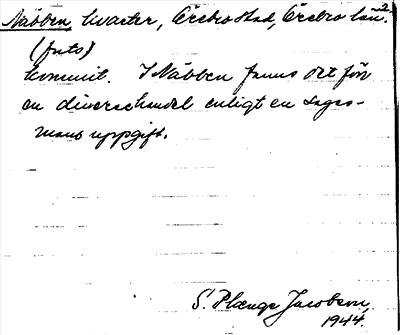 Näbben, kvarter, Örebro stad, Örebro län. 2
(forts)
kommit. I Näbben fanns det förr
en diversehandel enligt en sages-
mans uppgift.
S. Plænge Jacobson,
1944.